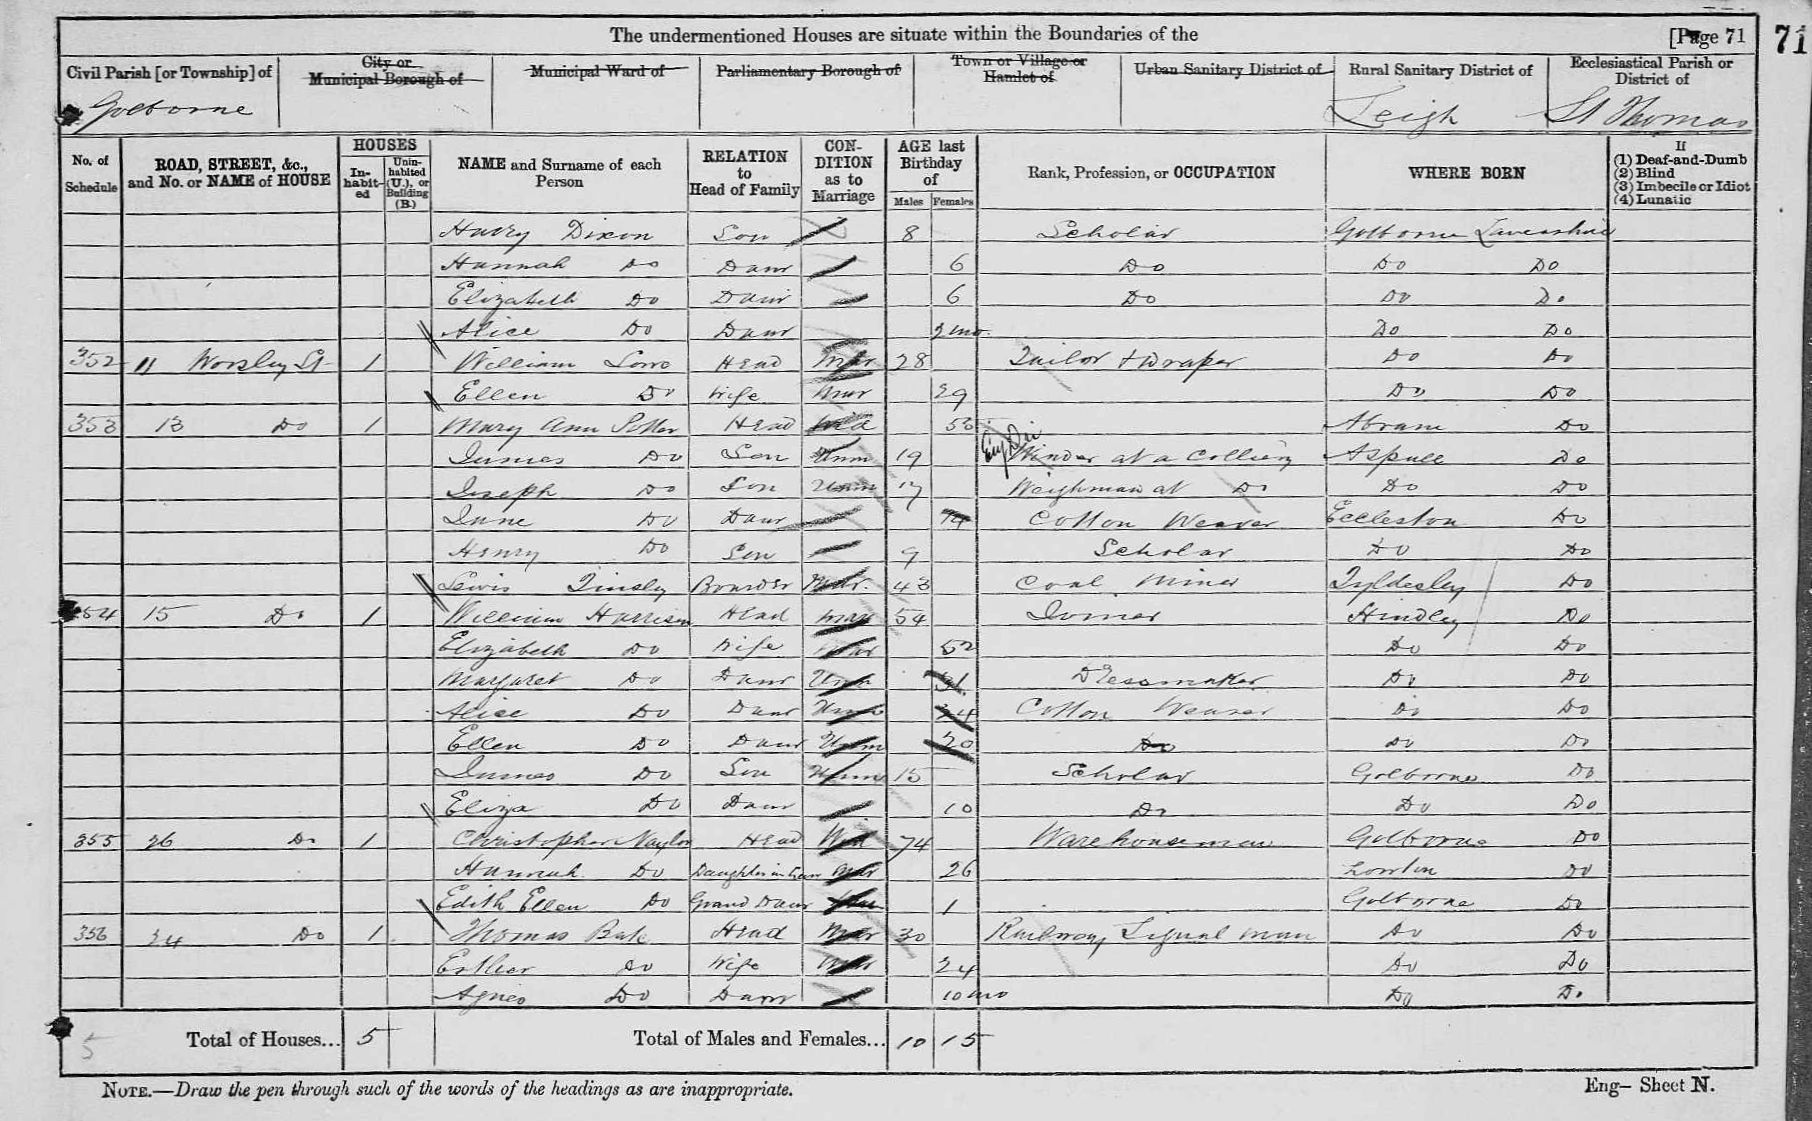 The undermentioned Houses are situate within the Boundaries of the [Page 71 71
Civil Parish [or Township] of City or Municipal Borough of Municipal Ward of Parliamentary Borough of Town or Village or Hamlet of Urban Sanitary District of Rural Sanitary District of Ecclesiastical Parish or District of
Golborne Leigh St Thomas
No. of Schedule ROAD, STREET, &c., and No. or NAME of HOUSE HOUSES Inhabited Uninhabited (U.), or Building (B.) NAME and Surname of each Person RELATION to Head of Family CONDITION as to Marriage AGE last Birthday of Males Females Rank, Profession, or OCCUPATION WHERE BORN If (1) Deaf-and-Dumb (2) Blind (3) Imbecile or Idiot (4) Lunatic
Harry Dixon Son 8 Scholar Golborne Lancashire
Hannah Do Daur 6 Do Do Do
Elizabeth Do Daur 6 Do Do Do
Alice Do Daur 2 mo. Do Do
352 11 Worsley St 1 William Lowe Head Mar 28 Tailor + Draper Do Do
Ellen Do Wife Mar 29 Do Do
353 13 Do 1 Mary Ann Head Wid 53 Abram Do
James Do Son Unm 19 Winder at a Colliery Aspull Do
Joseph Do Son Unm 17 Weighman at Do Do Do
Jane Do Daur 14 Cotton Weaver Eccleston Do
Henry Do Son 9 Scholar Do Do
Lewis Tinsley Boarder Mar. 43 Coal Miner Tyldesley Do
354 15 Do 1 William Harrison Head Mar 54 Joiner Hindley Do
Elizabeth Do Wife Mar 52 Do Do
Margaret Do Daur Unm Dressmaker Do Do
Alice Do Daur Unm 24 Cotton Weaver Do Do
Ellen Do Daur Unm 20 Do Do Do
James Do Son Unm 15 Scholar Golborne Do
Eliza Do Daur 10 Do Do Do
355 26 Do 1 Christopher Naylor Head Wid 74 Warehouseman Golborne Do
Hannah Do Daughter in law Mar 26 Lowton Do
Edith Ellen Do Grand Daur 1 Golborne Do
356 24 Do 1 Thomas Head Mar 30 Railway Signal man Do Do
Esther Do Wife Mar 24 Do Do
Agnes Do Daur 10 mo Do Do
5 Total of Houses... 5 Total of Males and Females... 10 15
NOTE.—Draw the pen through such of the words of the headings as are inappropriate. Eng— Sheet N.